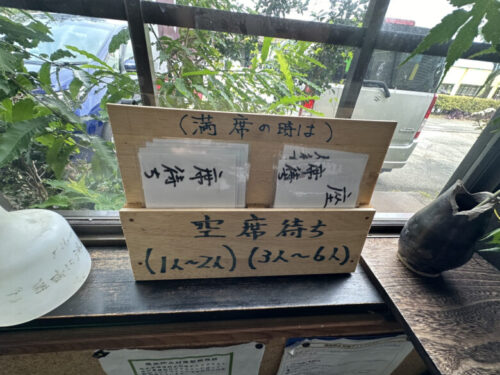 (満席の時は)
席待ち
座
席待
空席待ち
(1人〜2人) (3人〜6人)